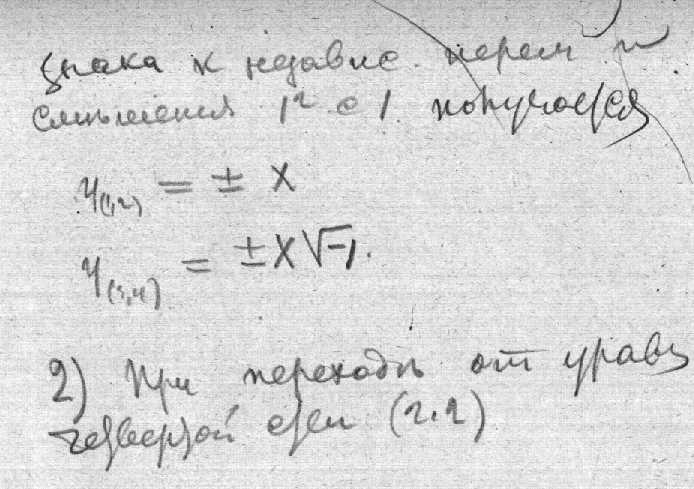 знака к независ. перем и
смешения 1² с 1 получается
y(1,2) = ± x
y(3,4) = ± x √-1.
2) При переходь от уравн
четвертой степ (2.2)